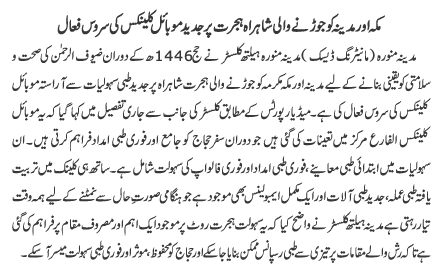 مکہ اور مدینہ کو جوڑنے والی شاہراہ ہجرت پر جدید موبائل کلینکس کی سروس فعال
مدینہ منورہ (مانیٹرنگ ڈیسک) مدینہ منورہ ہیلتھ کلسٹر نے حج 1446ھ کے دوران ضیوف الرحمٰن کی صحت و
سلامتی کو یقینی بنانے کے لیے مدینہ اور مکہ مکرمہ کو جوڑنے والی ہجرت شاہراہ پر جدید طبی سہولیات سے آراستہ موبائل
کلینکس کی سروس فعال کی ہے۔ میڈیا رپورٹس کے مطابق کلسٹر کی جانب سے جاری تفصیل میں کہا گیا کہ یہ موبائل
کلینکس الفارع مرکز میں تعینات کی گئی ہیں جو دوران سفر حجاج کو جامع اور فوری طبی امداد فراہم کرتی ہیں۔ ان
سہولیات میں ابتدائی طبی معاینے، فوری طبی امداد اور فوری فالواپ کی سہولت شامل ہے۔ ساتھ ہی کلینک میں تربیت
یافتہ طبی عملہ، جدید طبی آلات اور ایک مکمل ایمبولینس بھی موجود ہے جو ہنگامی صورت حال سے نمٹنے کے لیے ہمہ وقت
تیار رہتی ہے مدینہ ہیلتھ کلسٹر نے واضح کیا کہ یہ سہولت ہجرت روٹ پر موجود ایک اہم اور مصروف مقام پر فراہم کی گئی
ہے تاکہ رش والے مقامات پر تیزی سے طبی رسپانس ممکن بنایا جا سکے اور حجاج کو محفوظ، موثر اور فوری طبی سہولت میسر آ سکے۔